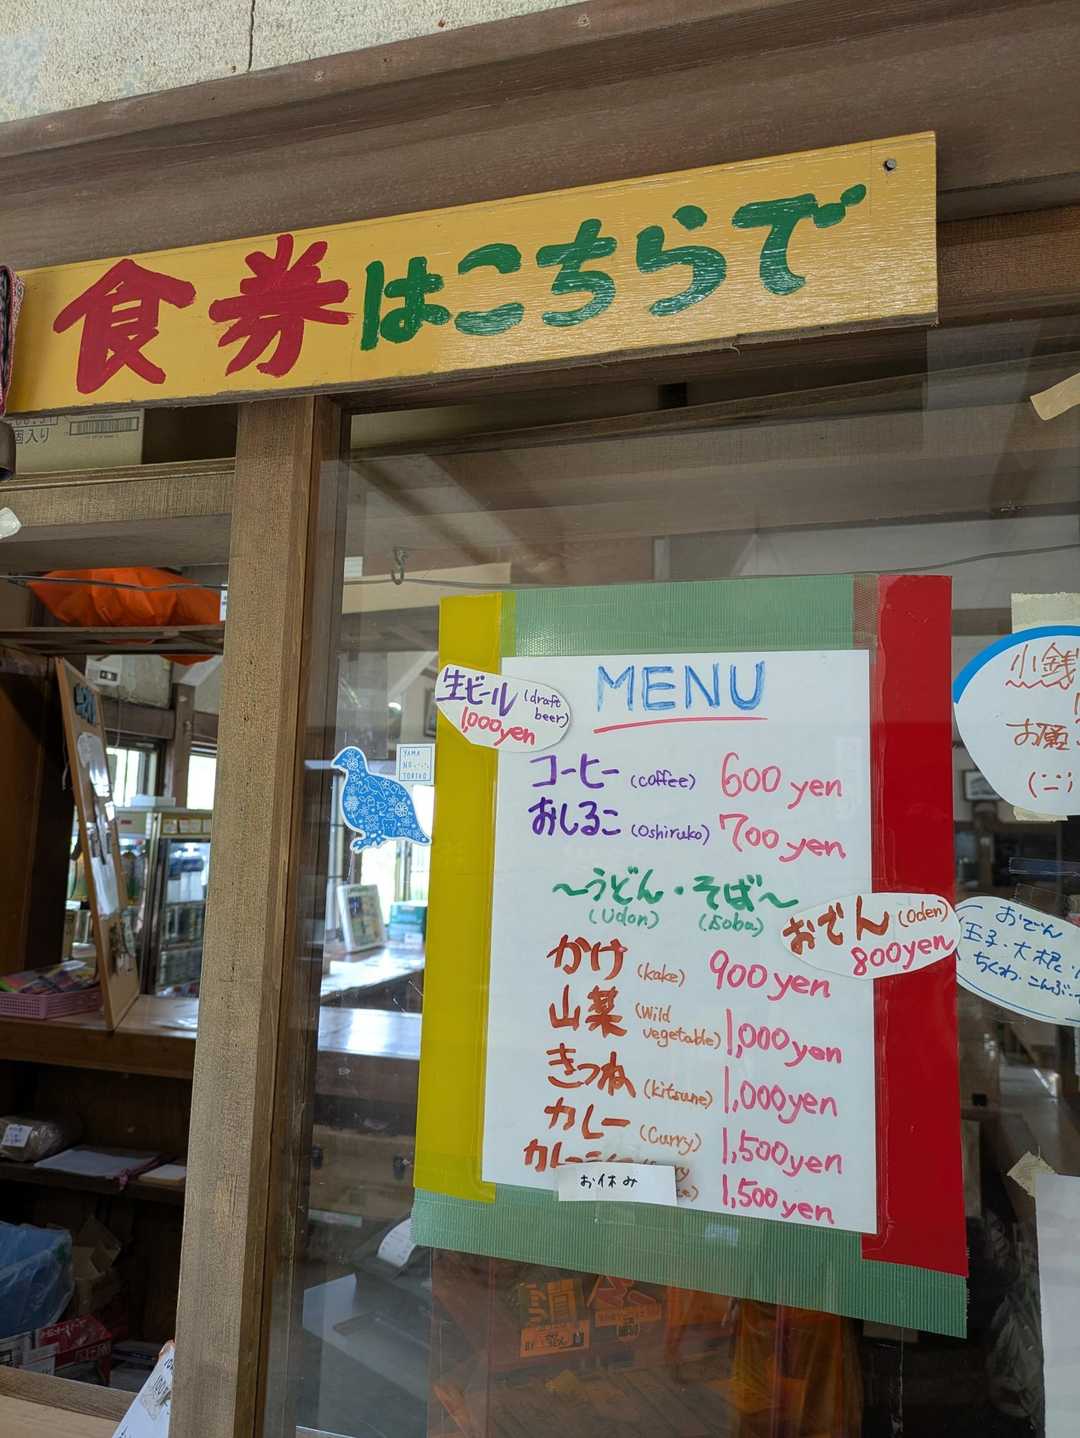 食券はこちらで
個入り
MENU
生ビール (draft beer)
1,000yen
YAMA
NO
TORIKO
コーヒー (coffee) 600 yen
おしるこ (Oshiruko) 700 yen
～うどん・そば～
(Udon) (Soba)
おでん (Oden)
800yen
かけ (kake) 900 yen
山菜 (Wild vegetable) 1,000 yen
きつね (kitsune) 1,000yen
カレー (Curry) 1,500yen
お休み
1,500yen
小銭
お願
おでん
玉子・大根
ちくわ・こんぶ